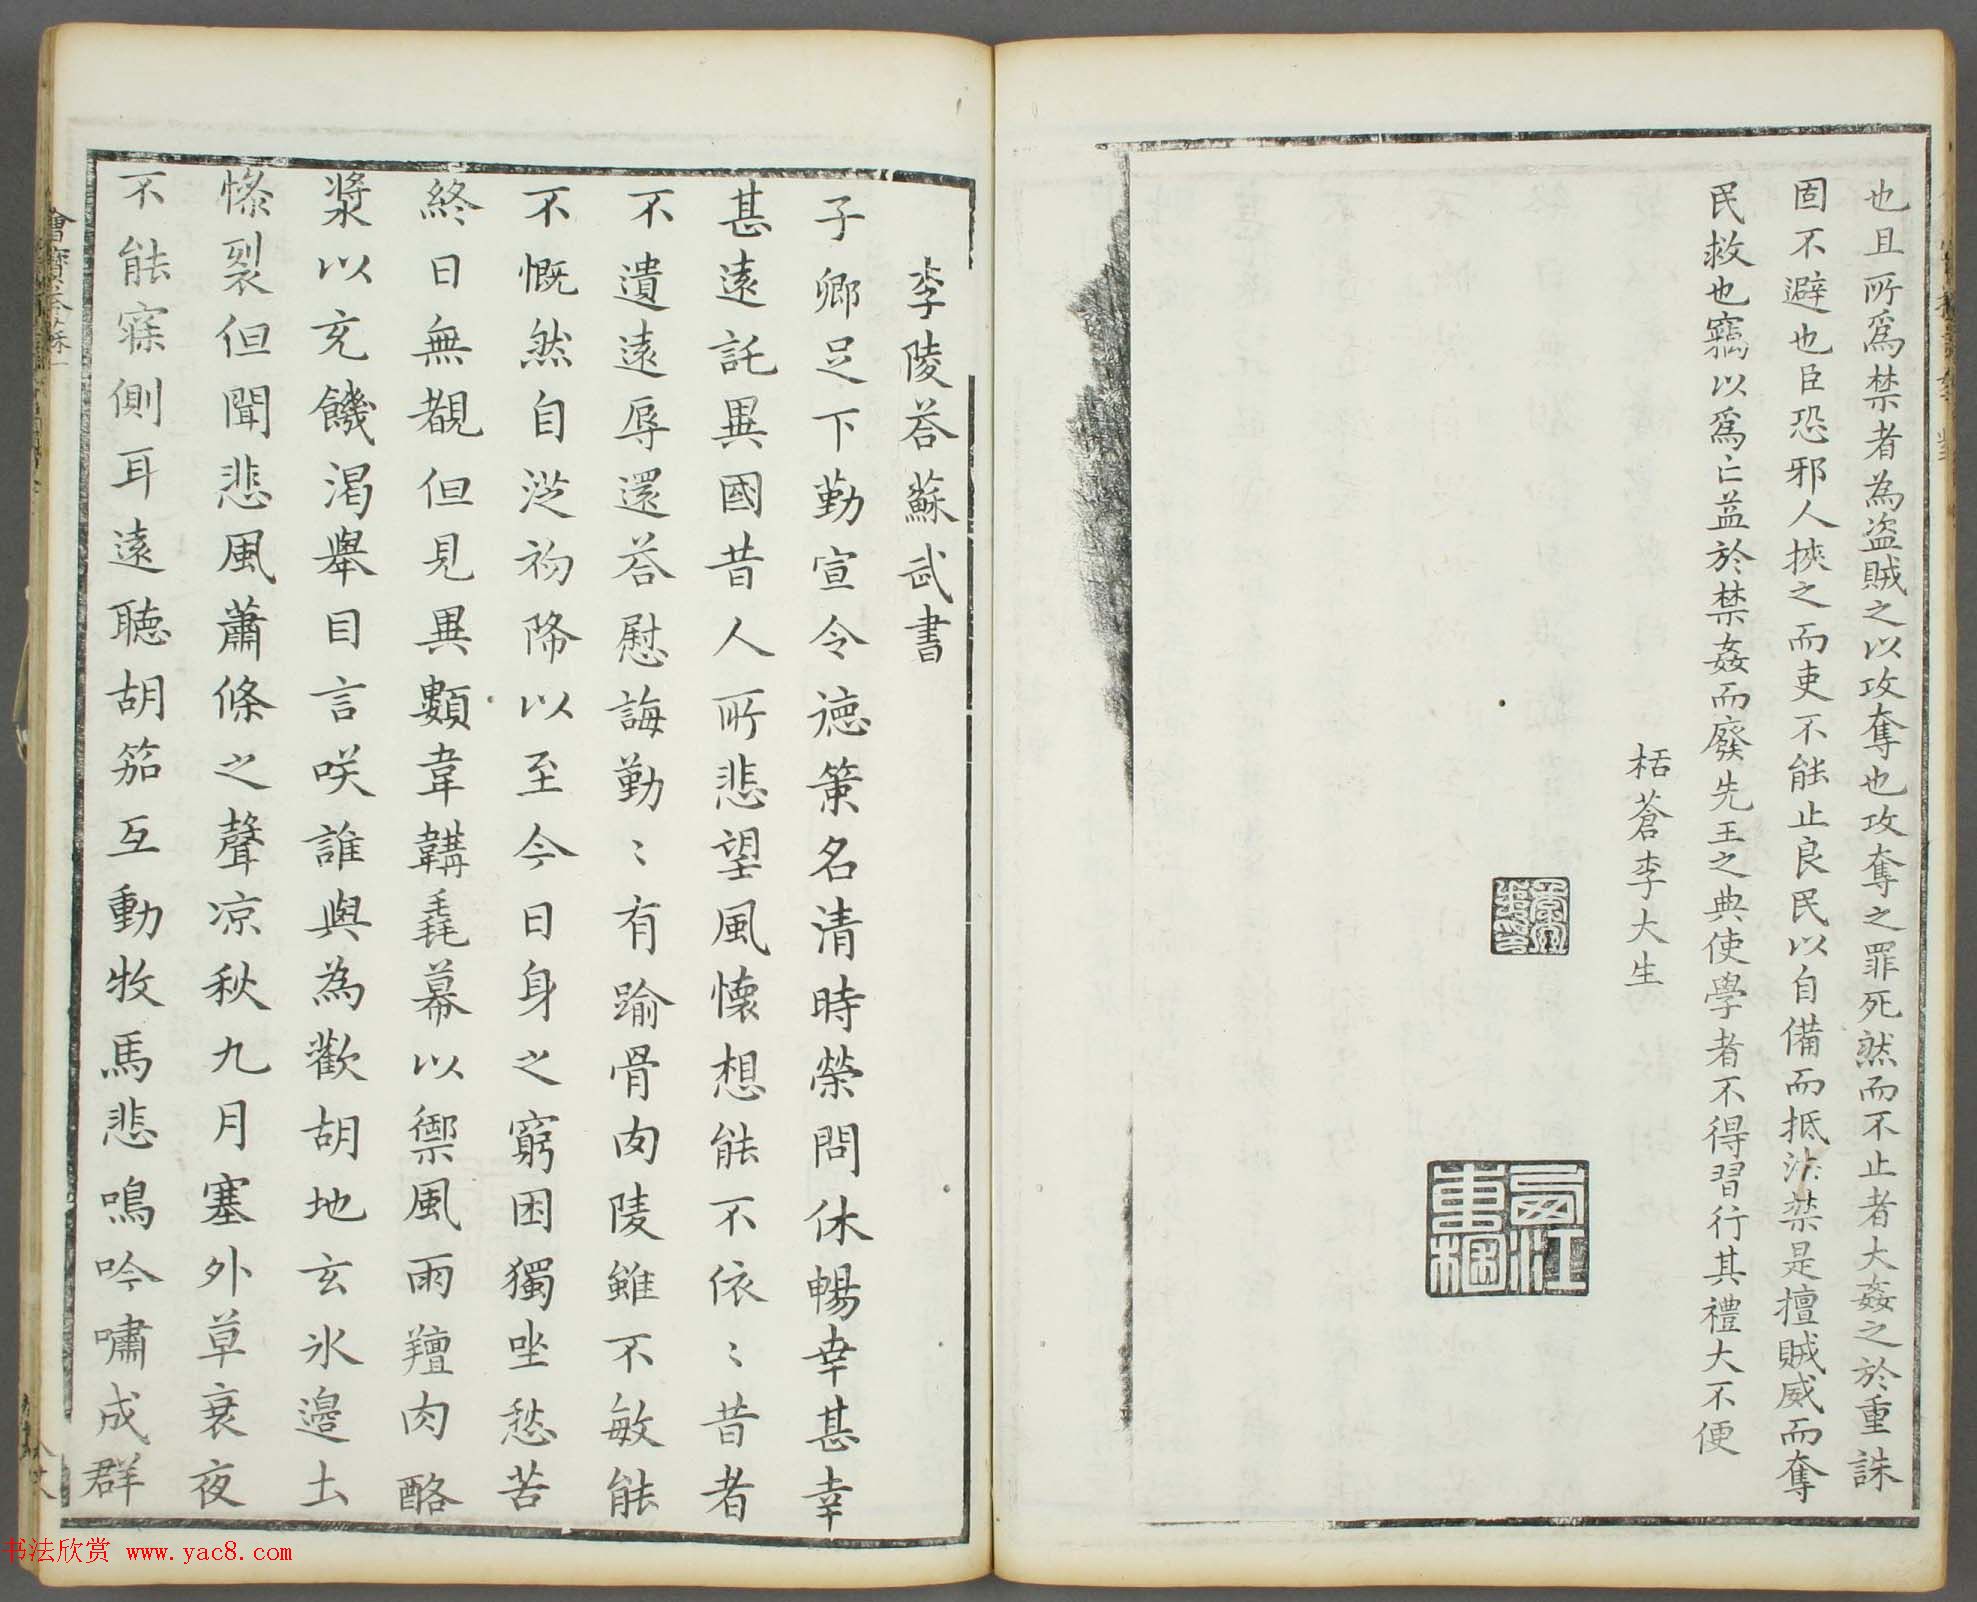 也且所爲禁者為盗賊之以攻奪也攻奪之罪死然而不止者大姦之於重誅
固不避也臣恐邪人挾之而吏不能止良民以自備而抵法禁是擅賊威而奪
民救也竊以爲亡益於禁姦而廢先王之典使學者不得習行其禮大不便
栝蒼李大生
李陵荅蘇武書
子卿足下勤宣令德策名清時榮問休暢幸甚幸
甚遠託異國昔人所悲望風懐想能不依〻昔者
不遺遠辱還荅慰誨勤〻有踰骨肉陵雖不敏能
不慨然自從初降以至今日身之窮困獨坐愁苦
終日無覩但見異類韋韝毳幕以禦風雨羶肉酪
漿以充饑渴舉目言咲誰與為歡胡地玄氷邊土
慘裂但聞悲風蕭條之聲凉秋九月塞外草衰夜
不能寐側耳遠聽胡笳互動牧馬悲鳴吟嘯成群
书法欣赏 www.yac8.com